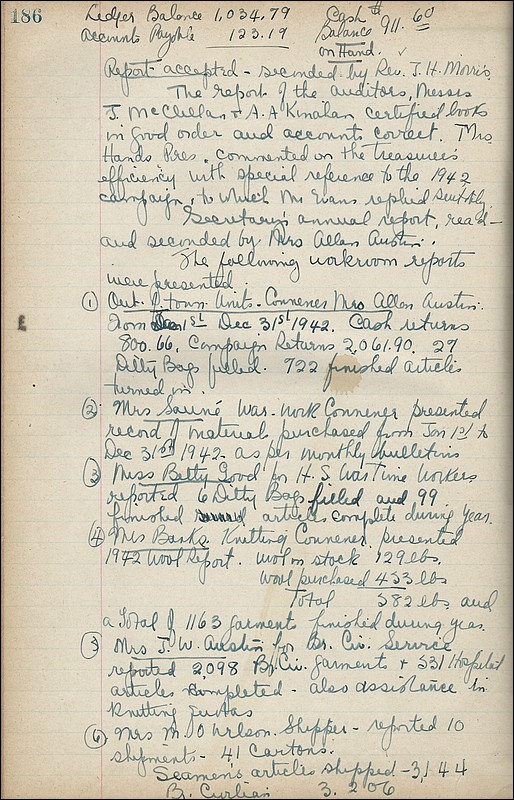 186
Ledger Balance 1,034.79
Accounts Payable 123.19
Cash $
Balance 911.60
on Hand.
Report accepted - seconded by Rev. J. H. Morris
The report of the auditors, Messrs
J. McClellan & A. A Kinahan certified books
in good order and accounts correct. Mrs
Hands Pres. commented on the Treasurer's
efficiency with special reference to the 1942
campaign, to which Mr Evans replied suitably.
Secretary's annual report, read -
and seconded by Mrs Allan Austin.
The following workroom reports
were presented.
① Out of town Units - Convener Mrs Allan Austin.
From Jan 1st Dec 31st 1942. Cash returns
800.66. Campaign Returns 2,061.90. 27
Ditty Bags filled. 722 finished articles
turned in.
② Mrs Sauvé War-work Convener presented
record of materials purchased from Jan 1st to
Dec 31st 1942 as per monthly bulletins
③ Miss Betty Good for H. S War Time Workers
reported 6 Ditty Bags filled and 99
finished articles complete during year.
④ Mrs Banks Knitting Convener presented
1942 Wool Report. Wool in stock 129 lbs.
Wool purchased 453 lbs
Total 582 lbs and
a Total of 1163 garments finished during year.
⑤ Mrs J. W. Austin for Br. Civ. Service
reported 2,098 Br Civ. garments & 531 Hospital
articles completed - also assistance in
knitting
⑥ Mrs M. O Wilson. Shipper - reported 10
shipments - 41 Cartons.
Seamen's articles shipped - 3,144
B. Civilian 3.206